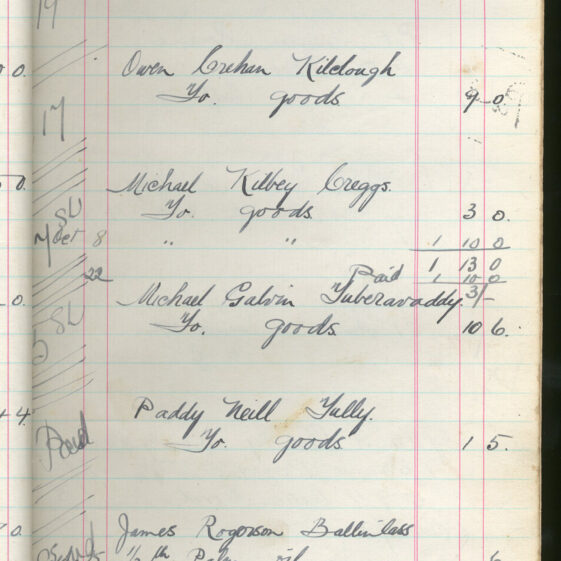 19
0 0. Owen Crehan Kilclough
To. goods 9 0.
17
Michael Kilbey Creggs.
0. To. goods 3 0.
SL
Oct 8 " " 1 10 0
1 13 0
22 Paid 1 10 0
Michael Galvin Tuberavaddy. 3/-
0. SL To. goods 10 6.
Paddy Neill Tully.
4. Paid To. goods 1 5.
James Rogerson Ballinlass
0.
1/2 Palm oil 6